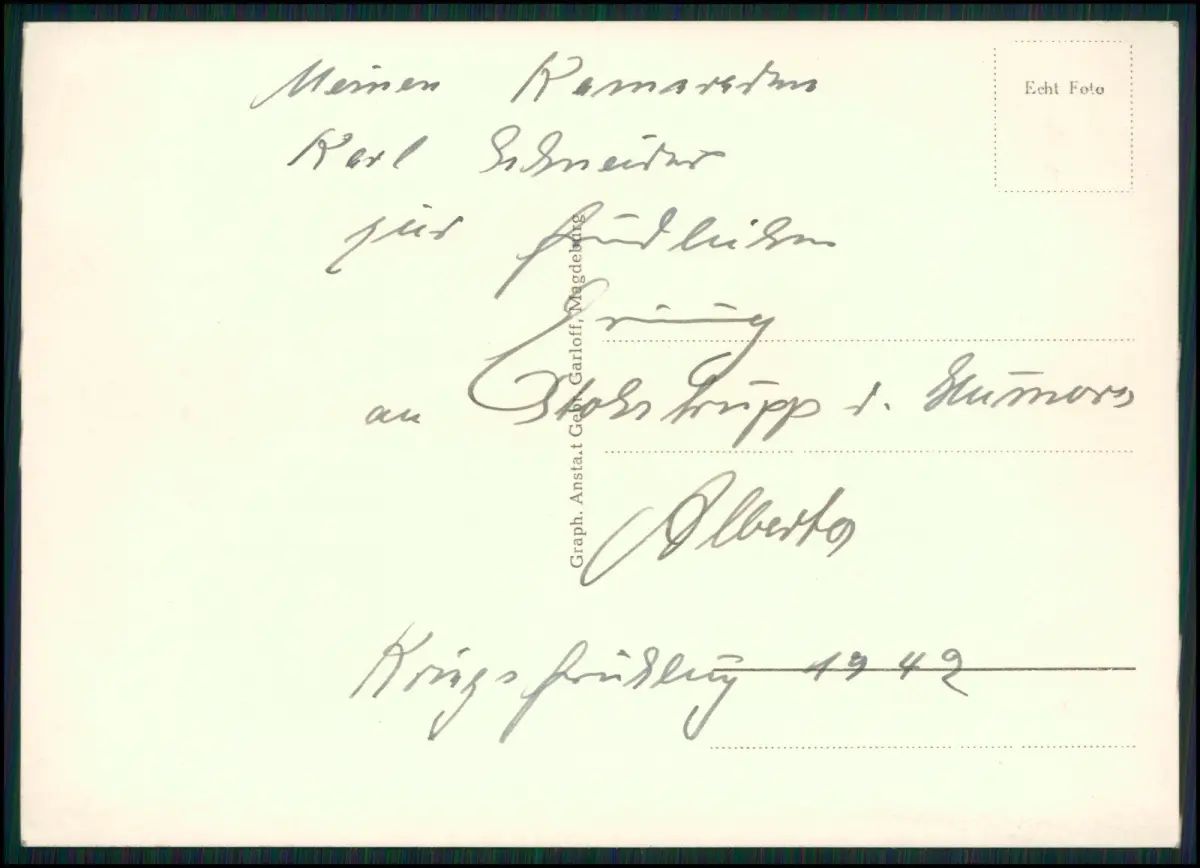 Meinen Kameraden
Karl Schneider
zur freundlichen
Erinnerung
an Stoßtrupp d. Humors
Alberto
Kriegsfrühling 1942
Echt Foto
Graph. Anstalt Gebr. Garloff, Magdeburg